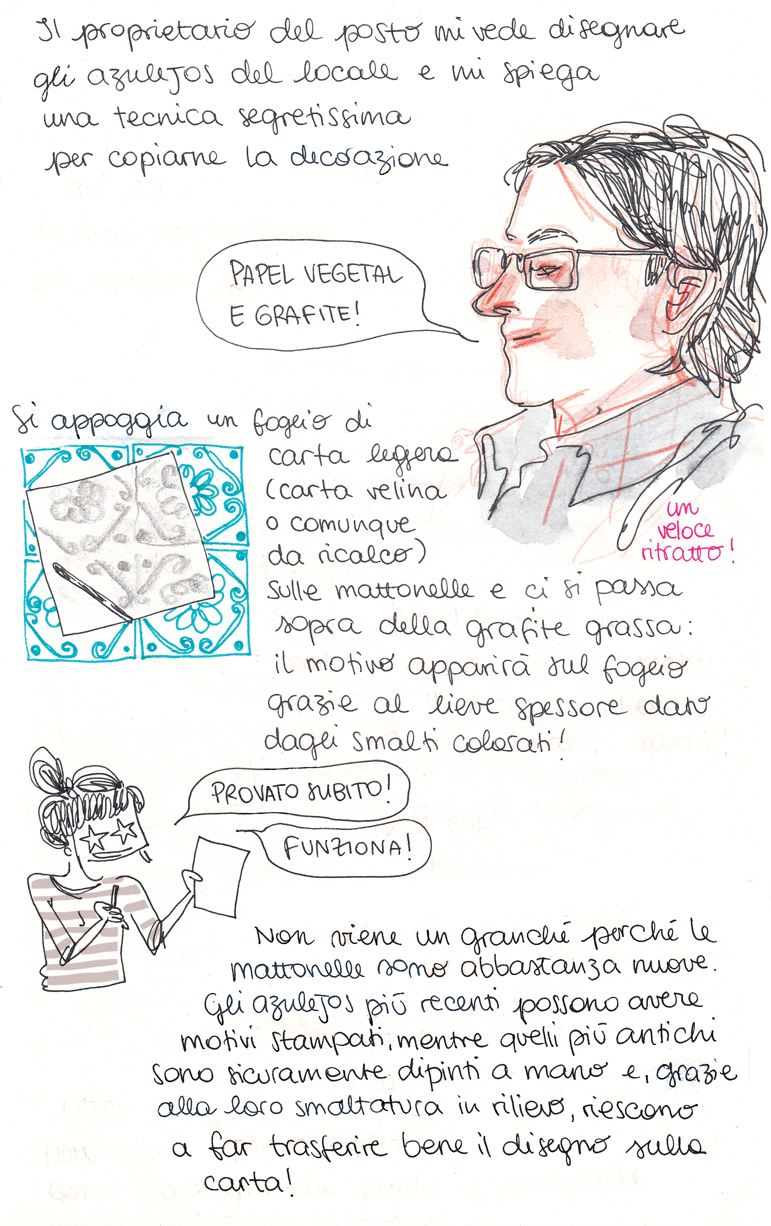 Il proprietario del posto mi vede disegnare
gli azulejos del locale e mi spiega
una tecnica segretissima
per copiarne la decorazione
PAPEL VEGETAL
E GRAFITE!
Si appoggia un foglio di
carta leggera
(carta velina
o comunque
da ricalco)
sulle mattonelle e ci si passa
sopra della grafite grassa:
il motivo apparirà sul foglio
grazie al lieve spessore dato
dagli smalti colorati!
un
veloce
ritratto!
PROVATO SUBITO!
FUNZIONA!
Non viene un granché perché le
mattonelle sono abbastanza nuove.
Gli azulejos più recenti possono avere
motivi stampati, mentre quelli più antichi
sono sicuramente dipinti a mano e, grazie
alla loro smaltatura in rilievo, riescono
a far trasferire bene il disegno sulla
carta!